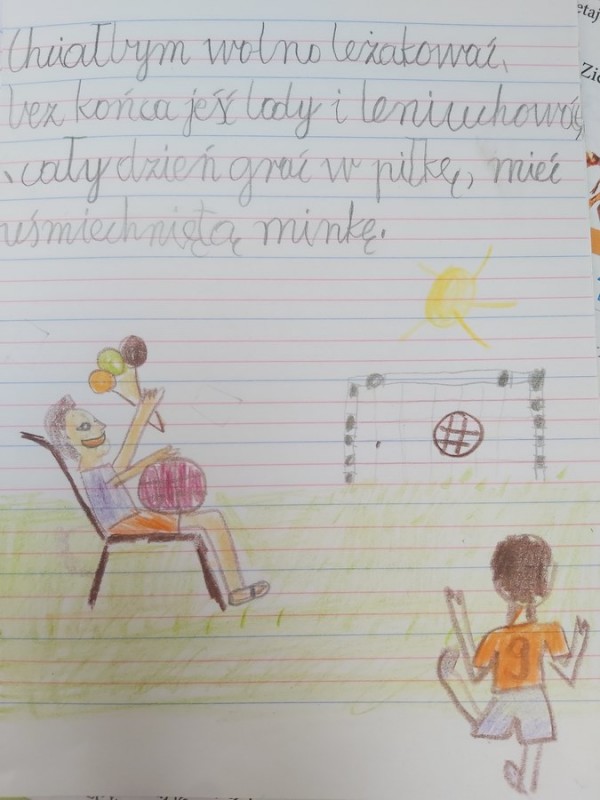 Chciałbym wolno leżakować,
bez końca jeść lody i leniuchować,
cały dzień grać w piłkę, mieć
uśmiechniętą minkę.
9